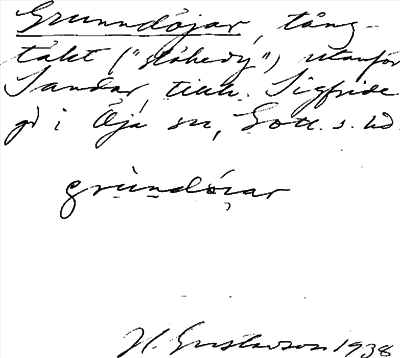 Grunndöjar, tång-
täkt ("slåhedy") utanför
Sandar, tillh. Sigfride
gd i Öja sn, Gotl. s. hd.
grùndó̤i̯ar
H. Gustavson 1938